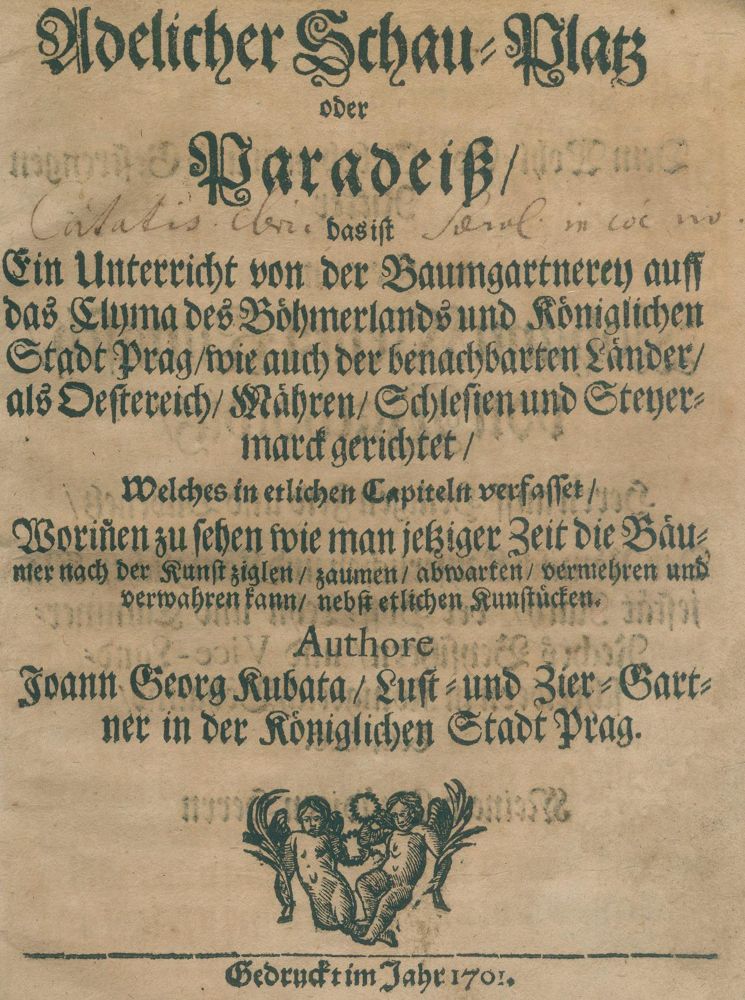 Adelicher Schau-Platz
oder
Paradeiß/
das ist
Ein Unterricht von der Baumgartnerey auff
das Clyma des Böhmerlands und Königlichen
Stadt Prag/wie auch der benachbarten Länder/
als Oestereich/ Mähren/ Schlesien und Steyer-
marck gerichtet/
Welches in etlichen Capiteln verfasset/
Woriñen zu sehen wie man jetziger Zeit die Bäu-
mer nach der Kunst ziglen/ zaumen/ abwarten/ vermehren und
verwahren kann/ nebst etlichen Kunstücken.
Authore
Joann Georg Kubata/ Lust- und Zier-Gart-
ner in der Königlichen Stadt Prag.
Gedruckt im Jahr 1701.